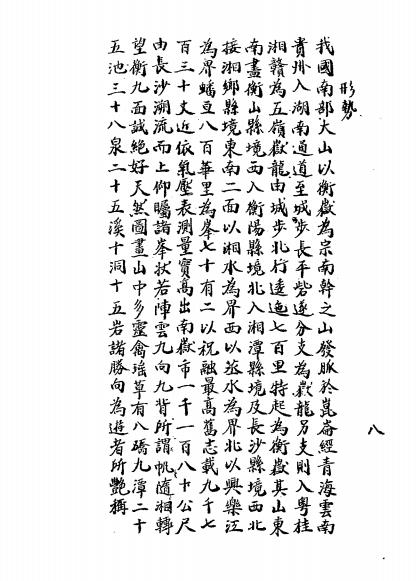 形勢
我國南部大山以衡嶽為宗南幹之山發脈於崑崙經青海雲南
貴州入湖南通道至城步長平砦遂分支為嶽龍另支則入粵桂
湘贛為五嶺嶽龍由城步北行逶迤七百里特起為衡嶽其山東
南盡衡山縣境西入衡陽縣境北入湘潭縣境及長沙縣境西北
接湘鄉縣境東南二面以湘水為界西以烝水為界北以興樂江
為界蟠亘八百華里為峯七十有二以祝融最高舊志載九千七
百三十丈近依氣壓表測量實高出南嶽市一千一百八十公尺
由長沙溯流而上仰矚諸峯狀若陣雲九向九背所謂帆隨湘轉
望衡九面誠絕好天然圖畫山中多靈禽瑤草有八礄九潭二十
五池三十八泉二十五溪十洞十五岩諸勝向為遊者所艷稱
八